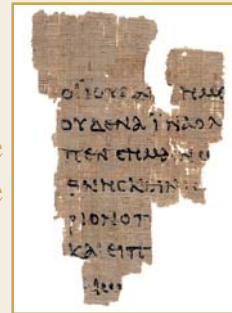 ΟΙ ΪΟΥΔΑΙ ΗΜΕ
ΟΥΔΕΝΑ ΪΝΑ ΟΛ
ΠΕΝ CΗΜΑΙΝΩ
ΘΝΗCΚΕΙΝ
ΡΙΟΝ Ο Π
ΚΑΙ ΕΙΠ
e
e